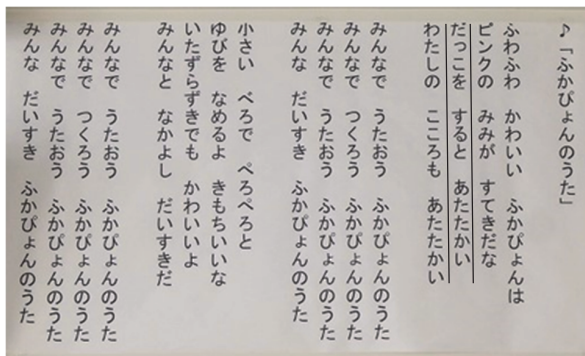 ♪「ふかぴょんのうた」
ふわふわ かわいい ふかぴょんは
ピンクの みみが すてきだな
だっこを すると あたたかい
わたしの こころも あたたかい
みんなで うたおう ふかぴょんのうた
みんなで つくろう ふかぴょんのうた
みんなで うたおう ふかぴょんのうた
みんな だいすき ふかぴょんのうた
小さい べろで ぺろぺろと
ゆびを なめるよ きもちいいな
いたずらずきでも かわいいよ
みんなと なかよし だいすきだ
みんなで うたおう ふかぴょんのうた
みんなで つくろう ふかぴょんのうた
みんなで うたおう ふかぴょんのうた
みんな だいすき ふかぴょんのうた